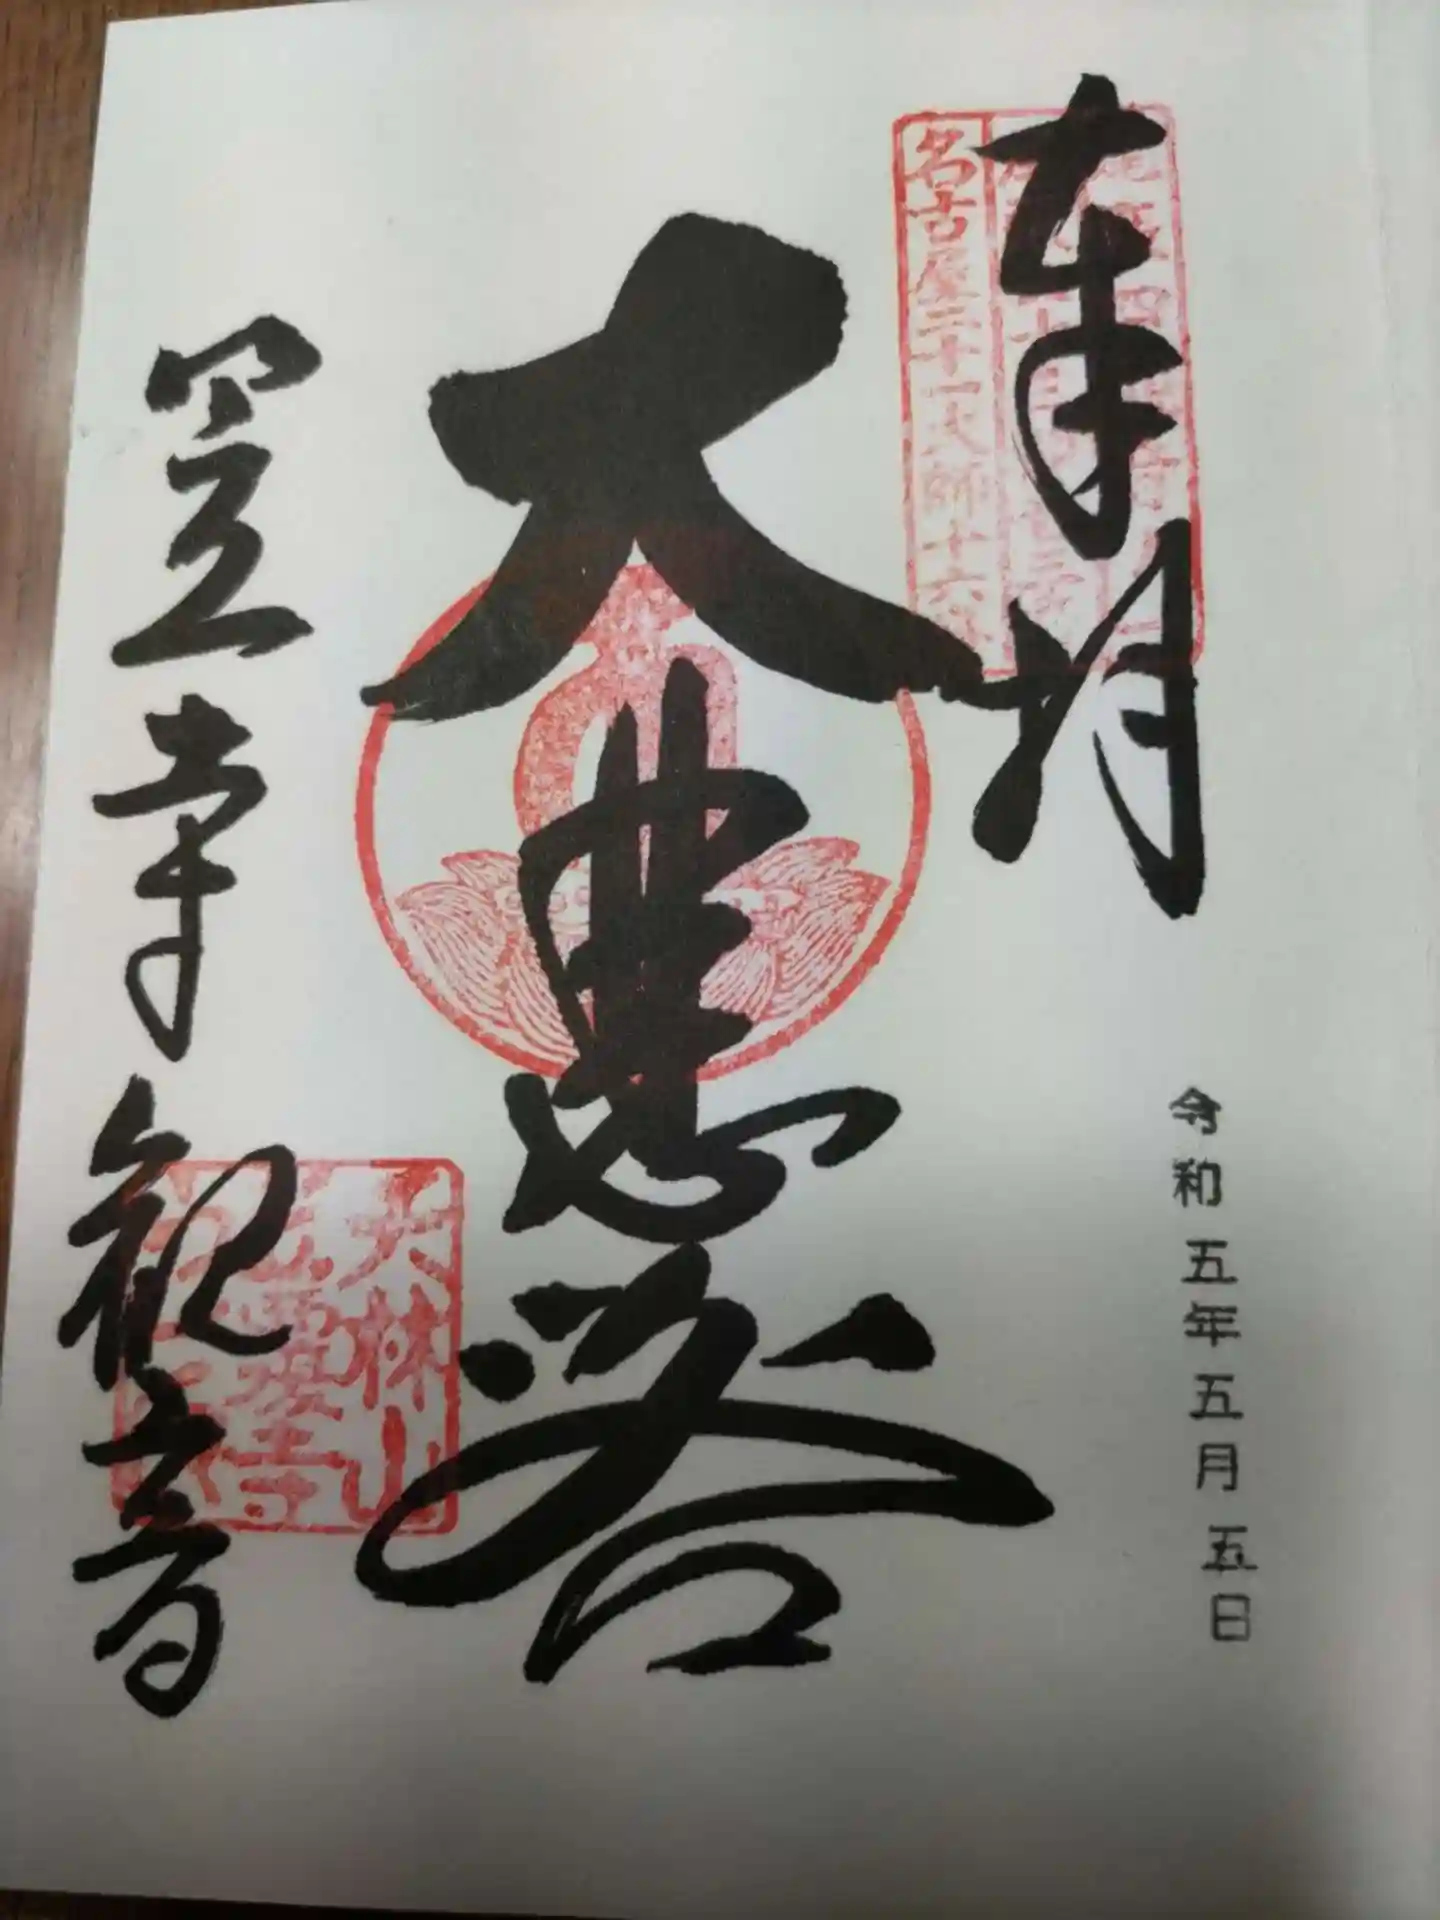 奉拝
名古屋二十一大師十六番
大悲殿
令和五年五月五日
笠寺観音
大林山